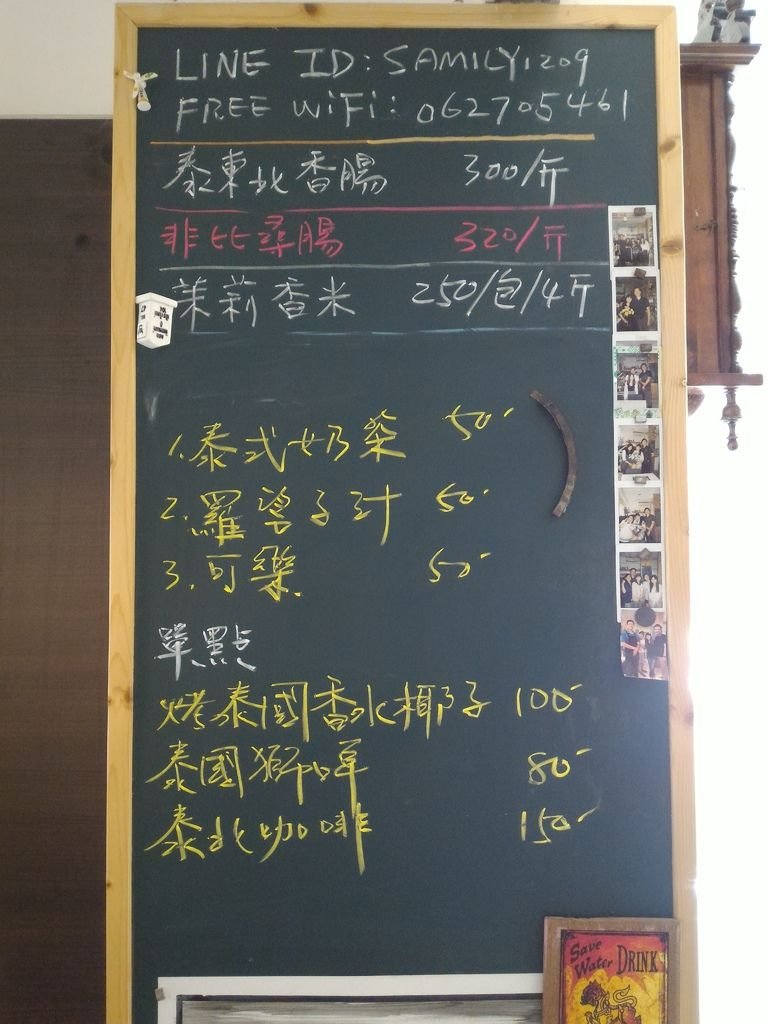 LINE ID: SAMILY1209
FREE WiFi: 062705461
泰東北香腸 300/斤
非比尋腸 320/斤
茉莉香米 250/包/4斤
1.泰式奶茶 50-
2.羅望子汁 50-
3.可樂. 50-
單點
烤泰國香水椰子 100-
泰國獅啤 80-
泰北咖啡 150-
Save Water DRINK